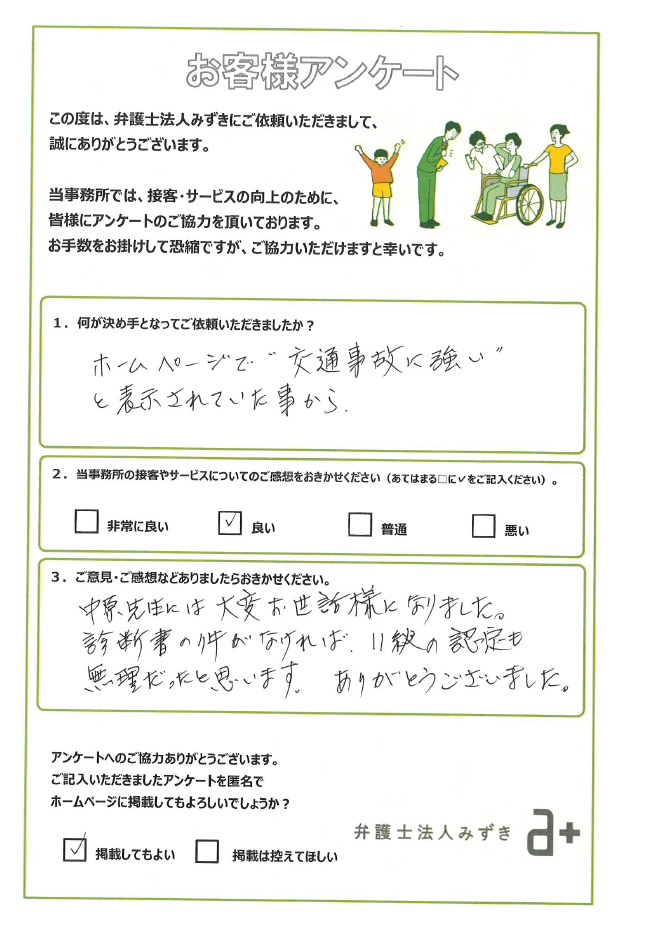 お客様アンケート
この度は、弁護士法人みずきにご依頼いただきまして、
誠にありがとうございます。
当事務所では、接客・サービスの向上のために、
皆様にアンケートのご協力を頂いております。
お手数をお掛けして恐縮ですが、ご協力いただけますと幸いです。
1．何が決め手となってご依頼いただきましたか？
ホームページで“交通事故に強い”
と表示されていた事から．
2．当事務所の接客やサービスについてのご感想をおきかせください（あてはまる□に✓をご記入ください）。
□ 非常に良い ☑ 良い □ 普通 □ 悪い
3．ご意見・ご感想などありましたらおきかせください。
中原先生には大変お世話様になりました。
診断書の件がなければ．11級の認定も
無理だったと思います。ありがとうございました。
アンケートへのご協力ありがとうございます。
ご記入いただきましたアンケートを匿名で
ホームページに掲載してもよろしいでしょうか？
弁護士法人みずき a+
☑ 掲載してもよい □ 掲載は控えてほしい